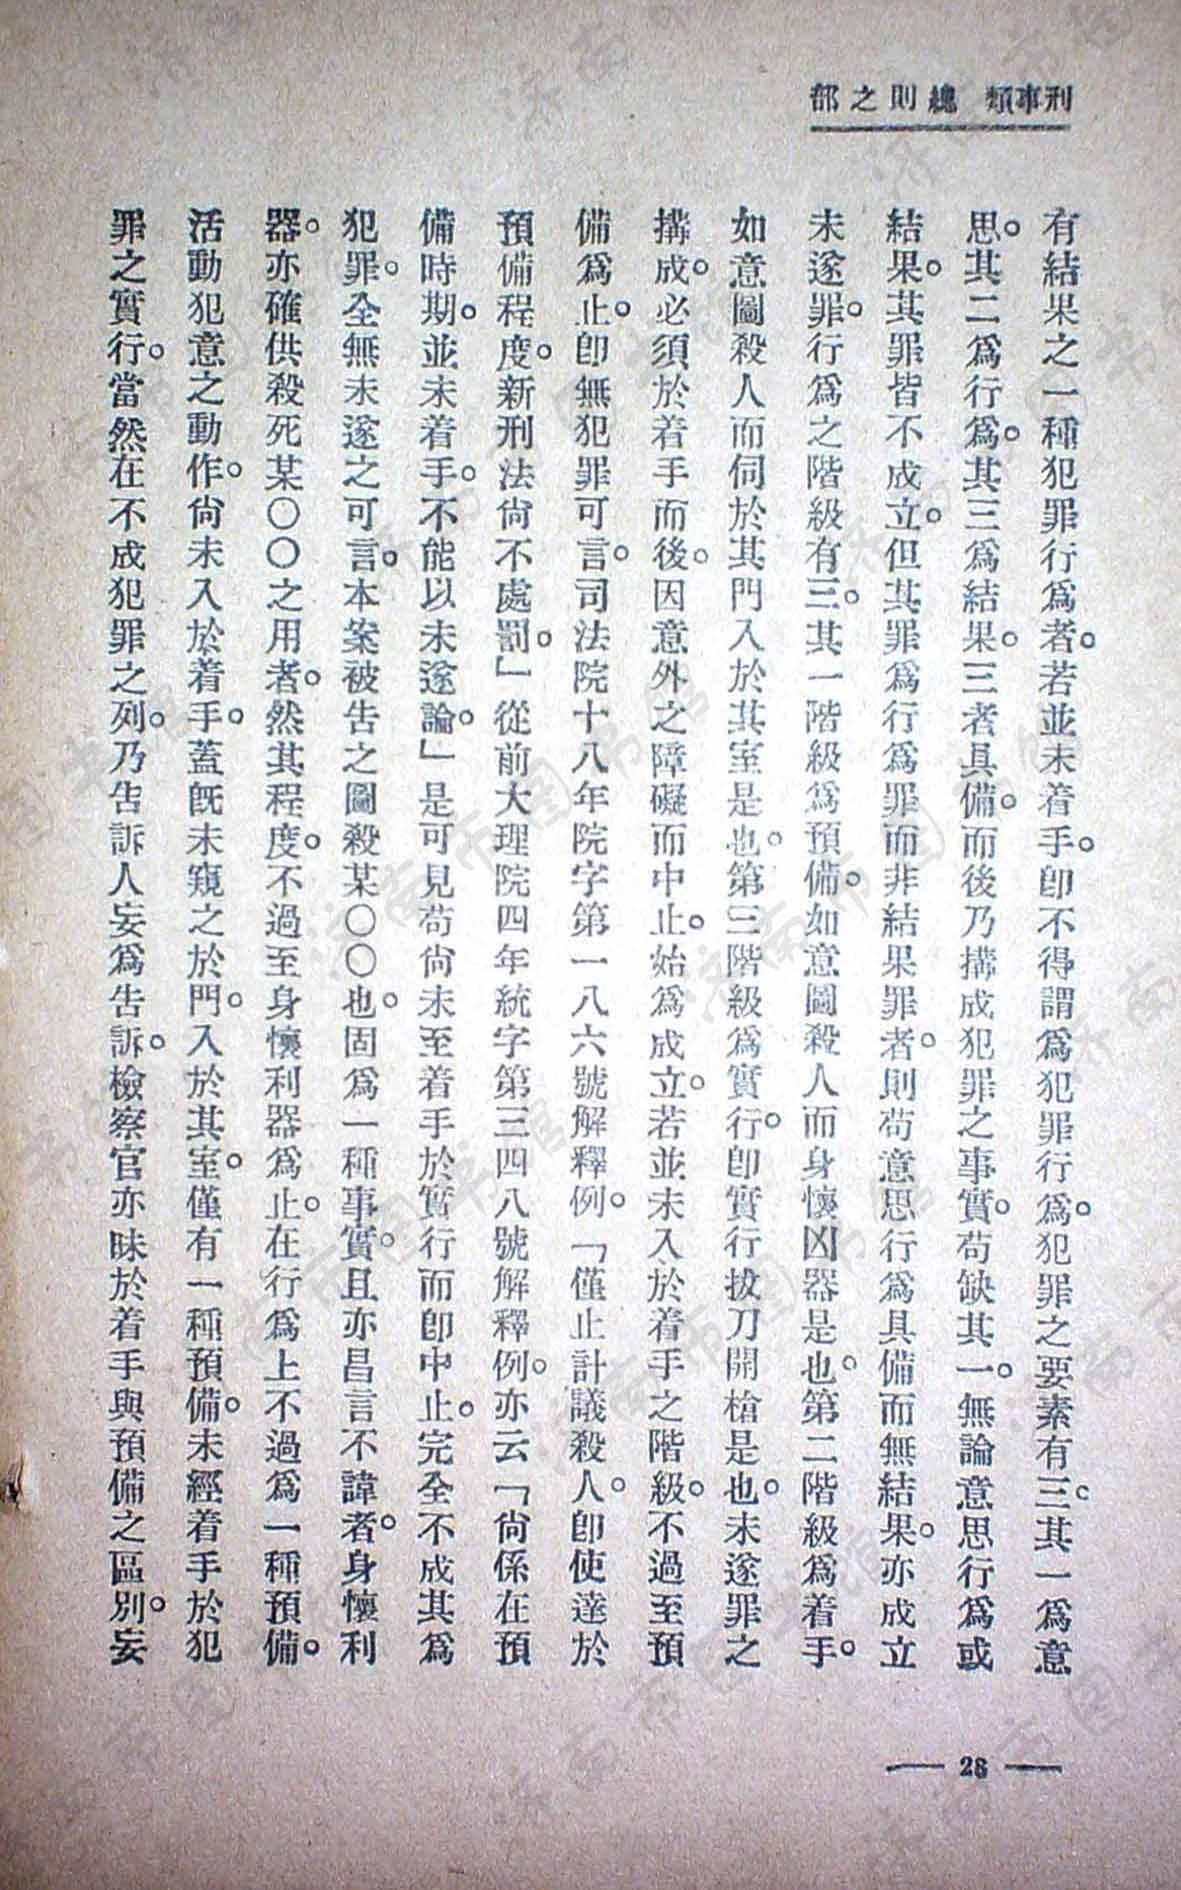 刑事類　總則之部
有結果之一種犯罪行爲者。若並未着手。卽不得謂爲犯罪行爲。犯罪之要素有三。其一爲意
思。其二爲行爲。其三爲結果。三者具備。而後乃搆成犯罪之事實。苟缺其一。無論意思行爲或
結果。其罪皆不成立。但其罪爲行爲罪而非結果罪者。則苟意思行爲具備而無結果。亦成立
未遂罪。行爲之階級有三。其一階級爲預備。如意圖殺人而身懷凶器是也。第二階級爲着手。
如意圖殺人而伺於其門入於其室是也。第三階級爲實行。卽實行拔刀開槍是也。未遂罪之
搆成。必須於着手而後。因意外之障礙而中止。始爲成立。若並未入於着手之階級。不過至預
備爲止。卽無犯罪可言。司法院十八年院字第一八六號解釋例。「僅止計議殺人。卽使達於
預備程度。新刑法尙不處罰。」從前大理院四年統字第三四八號解釋例。亦云「尙係在預
備時期。並未着手。不能以未遂論。」是可見苟尙未至着手於實行而卽中止。完全不成其爲
犯罪。全無未遂之可言。本案被告之圖殺某〇〇也。固爲一種事實。且亦昌言不諱者。身懷利
器。亦確供殺死某〇〇之用者。然其程度。不過至身懷利器爲止。在行爲上不過爲一種預備。
活動犯意之動作。尙未入於着手。蓋旣未窺之於門。入於其室。僅有一種預備。未經着手於犯
罪之實行。當然在不成犯罪之列。乃告訴人妄爲告訴。檢察官亦昧於着手與預備之區別。妄
— 28 —